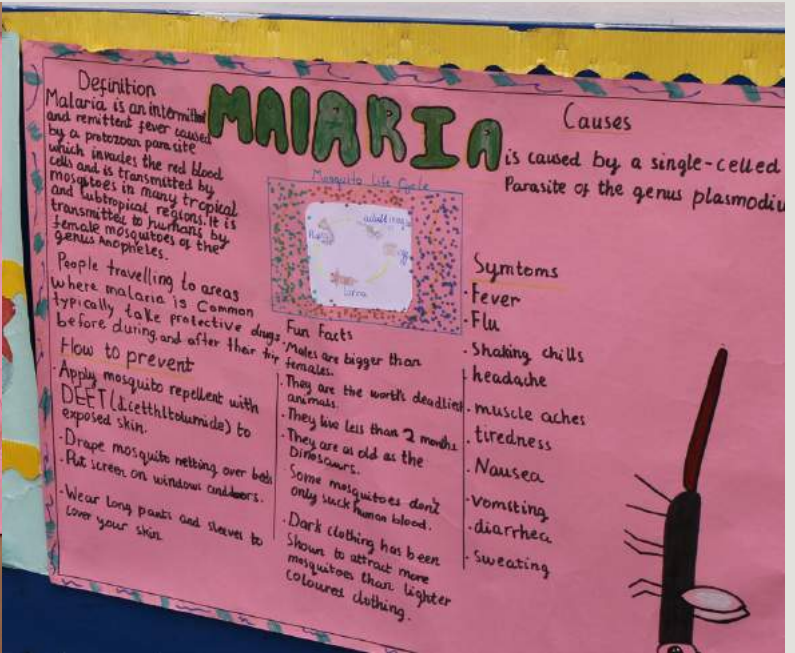 MAlARIA
Definition
Malaria is an intermitted
and remittent fever caused
by a protozoan parasite
which invades the red blood
cells and is transmitted by
mosqitoes in many tropical
and subtropical regions. It is
transmitted to humans by
female mosquitoes of the
genus Anopheles.
People travelling to areas
where malaria is Common
typically take protective drugs
before during and after their trip
How to prevent
· Apply mosquito repellent with
DEET (
to
exposed skin.
· Drape mosquito netting over beds
· Put screen on windows and doors.
· Wear Long pants and sleeves to
cover your skin
Mosquito Life Cycle
adult
egg
larva
Pupa
Fun Facts
· Males are bigger than
females.
· They are the world's deadliest
animals.
· They live less than 2 months
· They are as old as the
Dinosaurs.
· Some mosquitoes don't
only suck human blood.
· Dark clothing has been
Shown to attract more
mosquitoes than lighter
coloured clothing.
Causes
is caused by a single-celled
Parasite of the genus plasmodiu
Symtoms
· Fever
· Flu
· Shaking chills
· headache
· muscle aches
· tiredness
· Nausea
· vomsting
· diarrhea
· Sweating